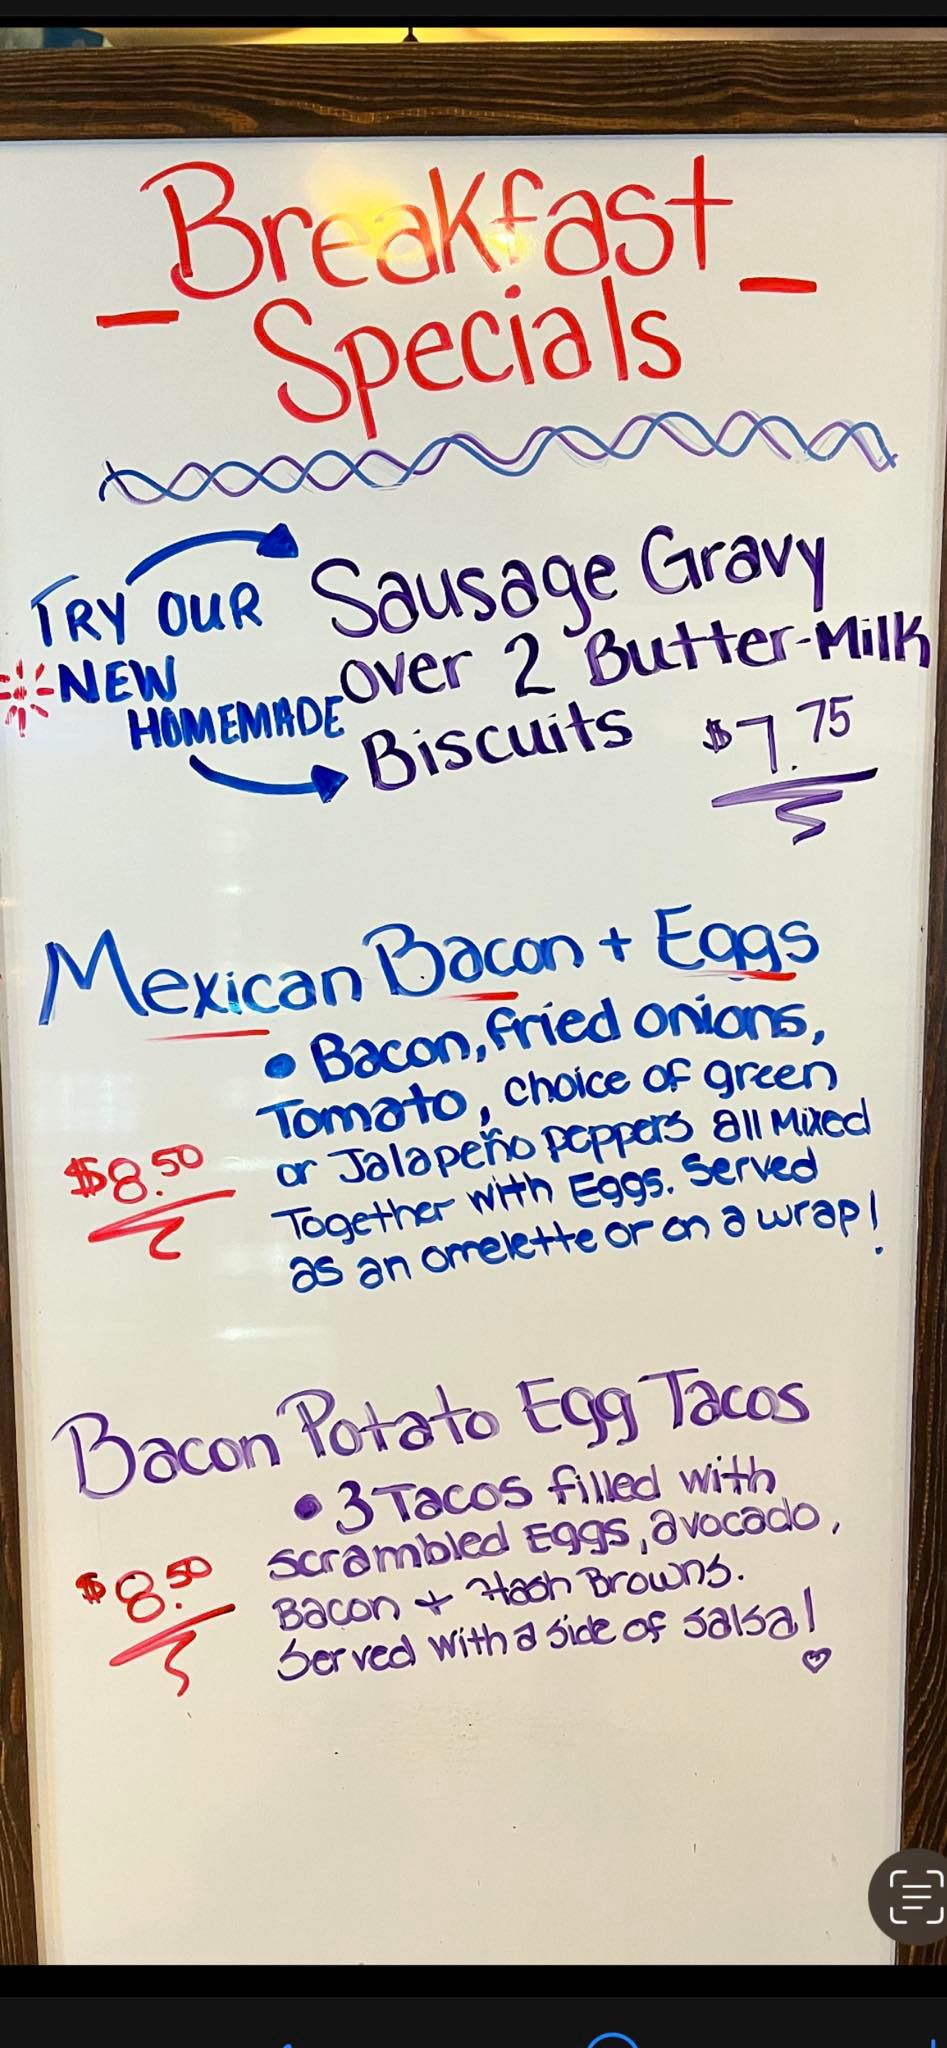 Breakfast
Specials
TRY OUR
NEW
HOMEMADE
Sausage Gravy
over 2 Butter-Milk
Biscuits $7.75
Mexican Bacon + Eggs
• Bacon, fried onions,
Tomato, choice of green
or Jalapeño peppers all Mixed
Together with Eggs. Served
as an omelette or on a wrap!
$8.50
Bacon Potato Egg Tacos
• 3 Tacos filled with
scrambled Eggs, avocado,
Bacon + Hash Browns.
Served with a side of salsa!
$8.50